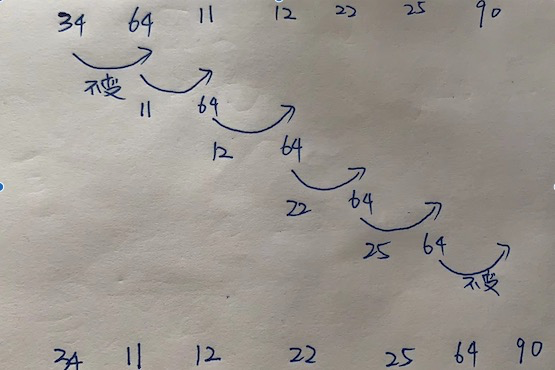 34 64 11 12 22 25 90
不变
11 64
12 64
22 64
25 64
不变
34 11 12 22 25 64 90